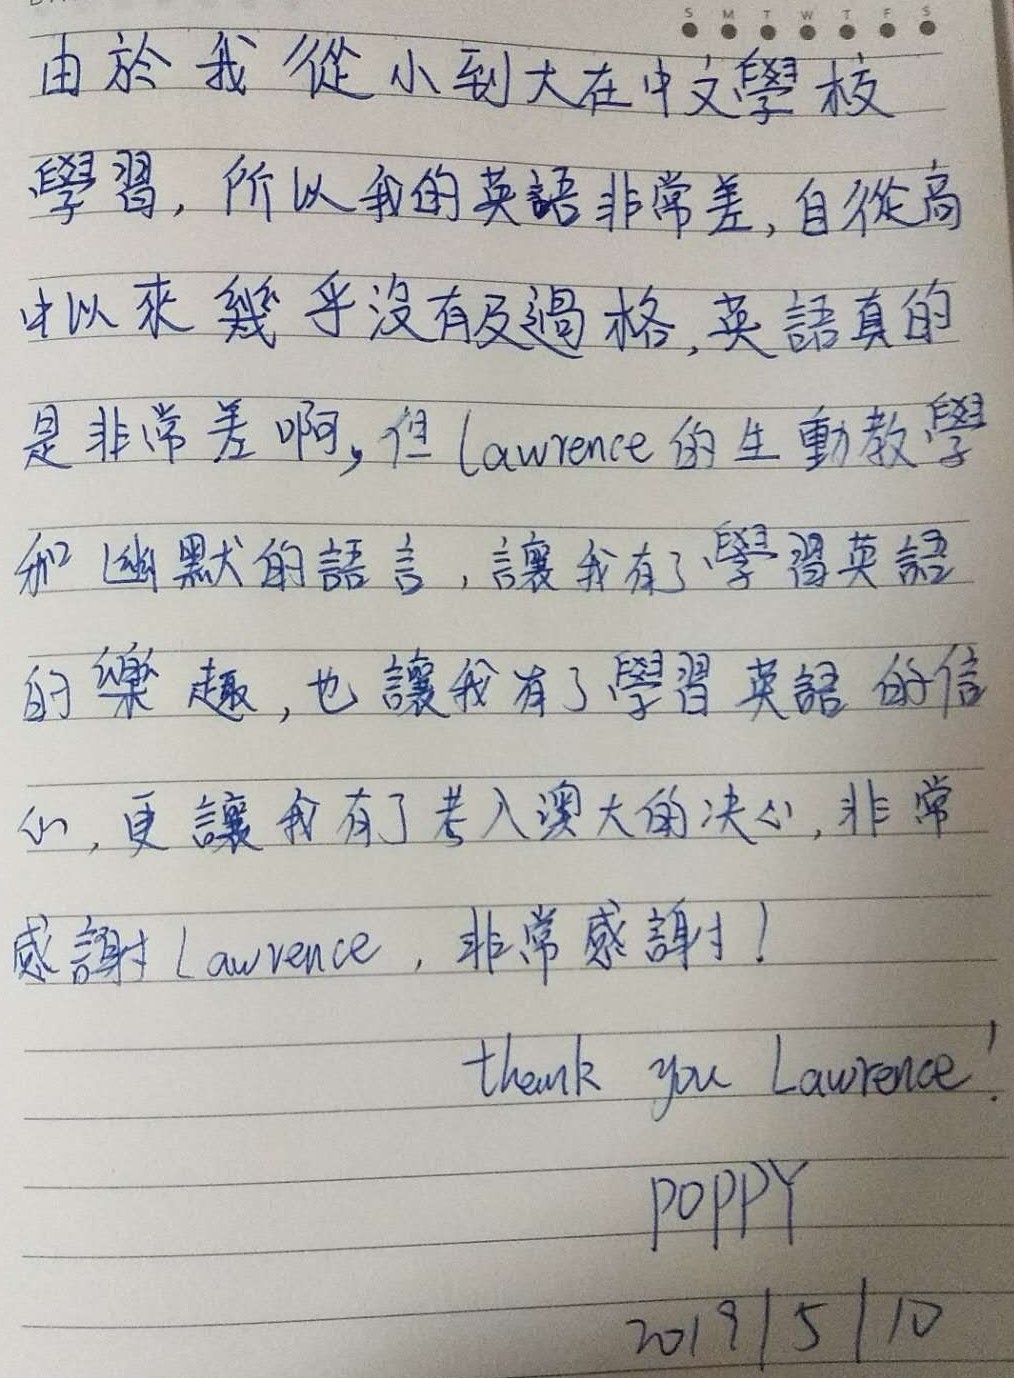 S M T W T F S
由於我從小到大在中文學校
學習,所以我的英語非常差,自從高
中以來幾乎沒有及過格,英語真的
是非常差啊,但Lawrence的生動教學
和幽默的語言,讓我有了學習英語
的樂趣,也讓我有了學習英語的信
心,更讓我有了考入澳大的決心,非常
感謝Lawrence,非常感謝!
thank you Lawrence!
POPPY
2019/5/10